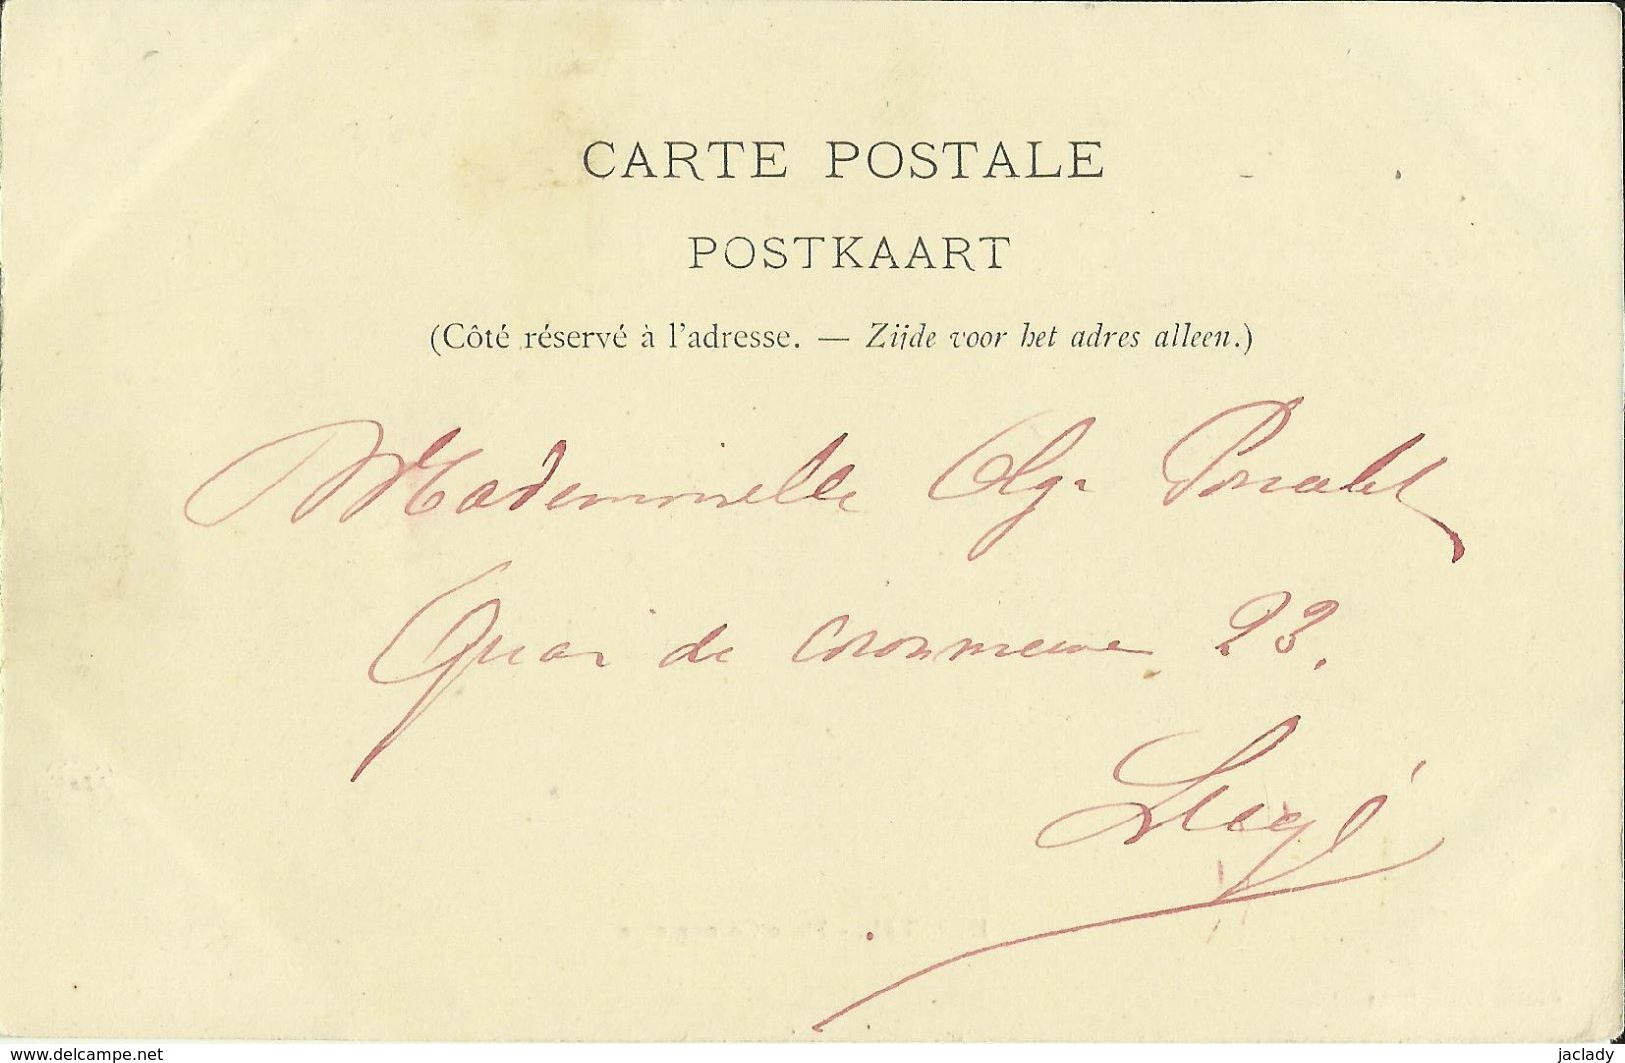 CARTE POSTALE
POSTKAART
(Côté réservé à l'adresse. — Zijde voor het adres alleen.)
Mademoiselle Olga
Quai de Coronmeuse 23.
Liège
www.delcampe.net
jaclady